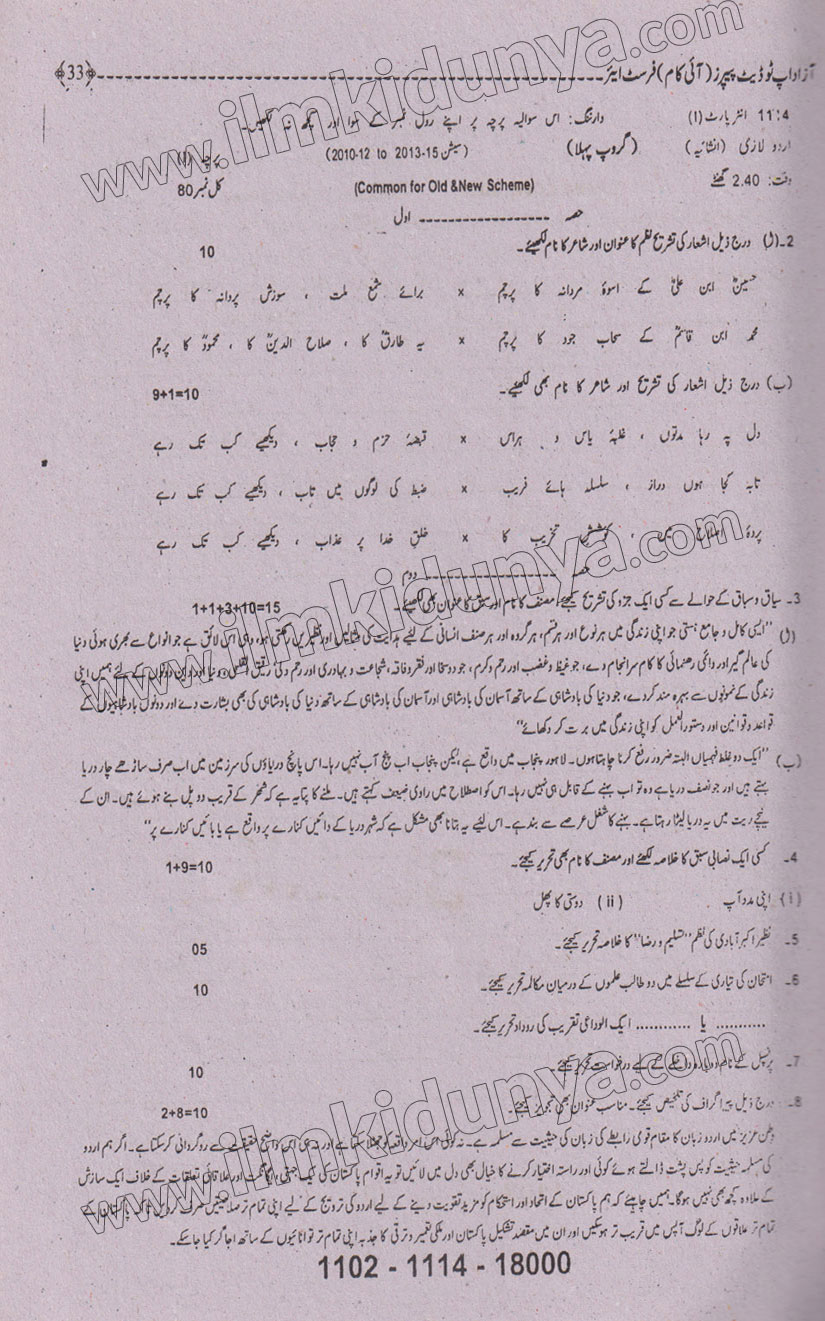 آزاد اپ ٹو ڈیٹ پیپرز (آئی کام) فرسٹ ایئر ---------- ﴿33﴾
11:4 انٹر پارٹ (I) وارننگ: اس سوالیہ پرچہ پر اپنے رول نمبر کے سوا اور کچھ نہ لکھیں۔
اردو لازمی (انشائیہ) (گروپ پہلا) (سیشن 2010-12 to 2013-15) پرچہ (I)
وقت: 2.40 گھنٹے (Common for Old &New Scheme) کل نمبر 80
حصہ ---------- اول
2۔ (ا) درج ذیل اشعار کی تشریح نظم کا عنوان اور شاعر کا نام لکھیئے۔ 10
حسینؓ ابن علیؓ کے اسوۂ مردانہ کا پرچم x برائے شمع ملت ، سوزش پروانہ کا پرچم
محمد ابن قاسمؒ کے سحاب جود کا پرچم x یہ طارقؒ کا ، صلاح الدینؒ کا ، محمودؒ کا پرچم
(ب) درج ذیل اشعار کی تشریح اور شاعر کا نام بھی لکھیئے۔ 9+1=10
دل پہ رہا مدتوں ، غلبۂ یاس و ہراس x قبضۂ حزم و حجاب ، دیکھیے کب تک رہے
تابہ کجا ہوں دراز ، سلسلہ ہائے فریب x ضبط کی لوگوں میں تاب ، دیکھیے کب تک رہے
پردۂ اصلاح میں ، کوشش تخریب کا x خلق خدا پر عذاب ، دیکھیے کب تک رہے
حصہ ---------- دوم
3۔ سیاق و سباق کے حوالے سے کسی ایک جزو کی تشریح کیجئے، مصنف کا نام اور سبق کا عنوان بھی لکھیئے۔ 1+1+3+10=15
(ا) "ایسی کامل و جامع ہستی جو اپنی زندگی میں ہر نوع اور ہر قسم، ہر گروہ اور ہر صنف انسانی کے لئے ہدایت کی مثالیں اور نظیریں رکھتی ہو، وہی اس لائق ہے جو انواع سے بھری ہوئی دنیا
کی عالم گیر اور دائمی رہنمائی کا کام سرانجام دے، جو غیظ و غضب اور رحم و کرم، جود و سخا اور فقر و فاقہ، شجاعت و بہادری اور رحم دلی و رقیق القلبی، دنیا اور دین دونوں کے لئے ہمیں اپنی
زندگی کے نمونوں سے بہرہ مند کردے، جو دنیا کی بادشاہی کے ساتھ آسمان کی بادشاہی اور آسمان کی بادشاہی کے ساتھ دنیا کی بادشاہی کی بھی بشارت دے اور دونوں بادشاہیوں کے
قواعد و قوانین اور دستور العمل کو اپنی زندگی میں برت کر دکھائے"
(ب) "ایک دو غلط فہمیاں البتہ ضرور رفع کرنا چاہتا ہوں۔ لاہور پنجاب میں واقع ہے لیکن پنجاب اب پنج آب نہیں رہا۔ اس پانچ دریاؤں کی سرزمین میں اب صرف ساڑھے چار دریا
بہتے ہیں اور جو نصف دریا ہے وہ تو اب بہنے کے قابل ہی نہیں رہا۔ اس کو اصطلاح میں راوی ضعیف کہتے ہیں۔ ملنے کا پتا یہ ہے کہ شہر کے قریب دو پل بنے ہوئے ہیں۔ ان کے
نیچے ریت میں یہ دریا لیٹا رہتا ہے۔ بہنے کا شغل عرصے سے بند ہے۔ اس لیے یہ بتانا بھی مشکل ہے کہ شہر دریا کے دائیں کنارے پر واقع ہے یا بائیں کنارے پر"
4۔ کسی ایک نصابی سبق کا خلاصہ لکھئے اور مصنف کا نام بھی تحریر کیجئے۔ 1+9=10
(i) اپنی مدد آپ (ii) دوستی کا پھل
5۔ نظیر اکبر آبادی کی نظم "تسلیم و رضا" کا خلاصہ تحریر کیجئے۔ 05
6۔ امتحان کی تیاری کے سلسلے میں دو طالب علموں کے درمیان مکالمہ تحریر کیجئے۔ 10
........... یا ............ ایک الوداعی تقریب کی روداد تحریر کیجئے۔
7۔ پرنسپل کے نام دوبارہ داخلے کے لیے درخواست تحریر کیجئے۔ 10
8۔ درج ذیل پیرا گراف کی تلخیص کیجئے۔ مناسب عنوان بھی تجویز کیجئے۔ 2+8=10
وطن عزیز میں اردو زبان کا مقام قومی رابطے کی زبان کی حیثیت سے مسلمہ ہے۔ نہ کوئی اس امر واقعہ کو جھٹلا سکتا ہے اور نہ ہی اس واضح حقیقت سے روگردانی کر سکتا ہے۔ اگر ہم اردو
کی مسلمہ حیثیت کو پس پشت ڈالتے ہوئے کوئی اور راستہ اختیار کرنے کا خیال بھی دل میں لائیں تو یہ اقوام پاکستان کی یک جہتی، یگانگت اور علاقائی تعلقات کے خلاف ایک سازش
کے علاوہ کچھ بھی نہیں ہوگا۔ ہمیں چاہئے کہ ہم پاکستان کے اتحاد اور استحکام کو مزید تقویت دینے کے لیے اردو کی ترویج کے لیے اپنی تمام تر صلاحیتیں صرف کردیں تاکہ پاکستان کے
تمام تر علاقوں کے لوگ آپس میں قریب تر ہو سکیں اور ان میں مقصد تشکیل پاکستان اور ملکی تعمیر و ترقی کا جذبہ اپنی تمام تر توانائیوں کے ساتھ اجاگر کیا جاسکے۔
1102 - 1114 - 18000
www.ilmkidunya.com
www.ilmkidunya.com
www.ilmkidunya.com